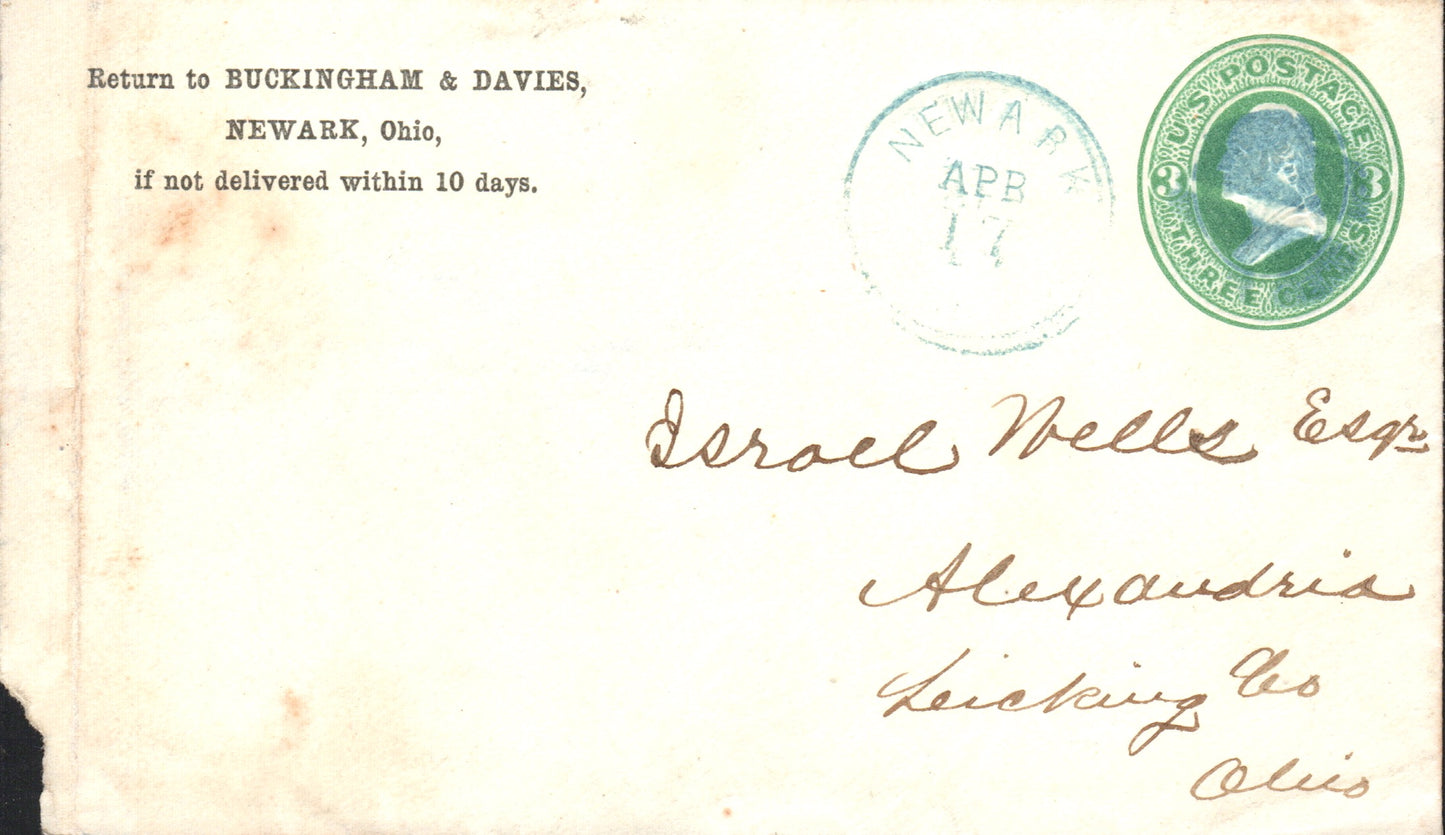 Return to BUCKINGHAM & DAVIES,
NEWARK, Ohio,
if not delivered within 10 days.
NEWARK
APR
17
U.S. POSTAGE
3 3
THREE CENTS
Israel Wells Esqr
Alexandria
Licking Co
Ohio